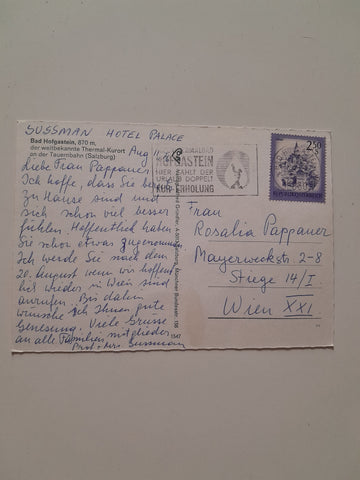 SUSSMAN HOTEL PALACE
Bad Hofgastein, 870 m,
der weltbekannte Thermal-Kurort
an der Tauernbahn (Salzburg)
Aug 11
Liebe Frau Pappauer
Ich hoffe, dass Sie
zu Hause sind und
sich schon viel besser
fühlen. Hoffentlich haben
Sie schon etwas zugenommen.
Ich werde Sie nach dem
20. August wenn wir hoffent-
lich wieder in Wien sind
anrufen. Bis dahin
wünsche ich Ihnen gute
Genesung. Viele Grüsse
an alle Familienmitglieder
Sussman
HOFGASTEIN
HIER ZÄHLT DER
URLAUB DOPPELT
KUR + ERHOLUNG
2.50
Frau
Rosalia Pappauer
Mayerweckstr. 2-8
Stiege 14/I
Wien XXI.
1547